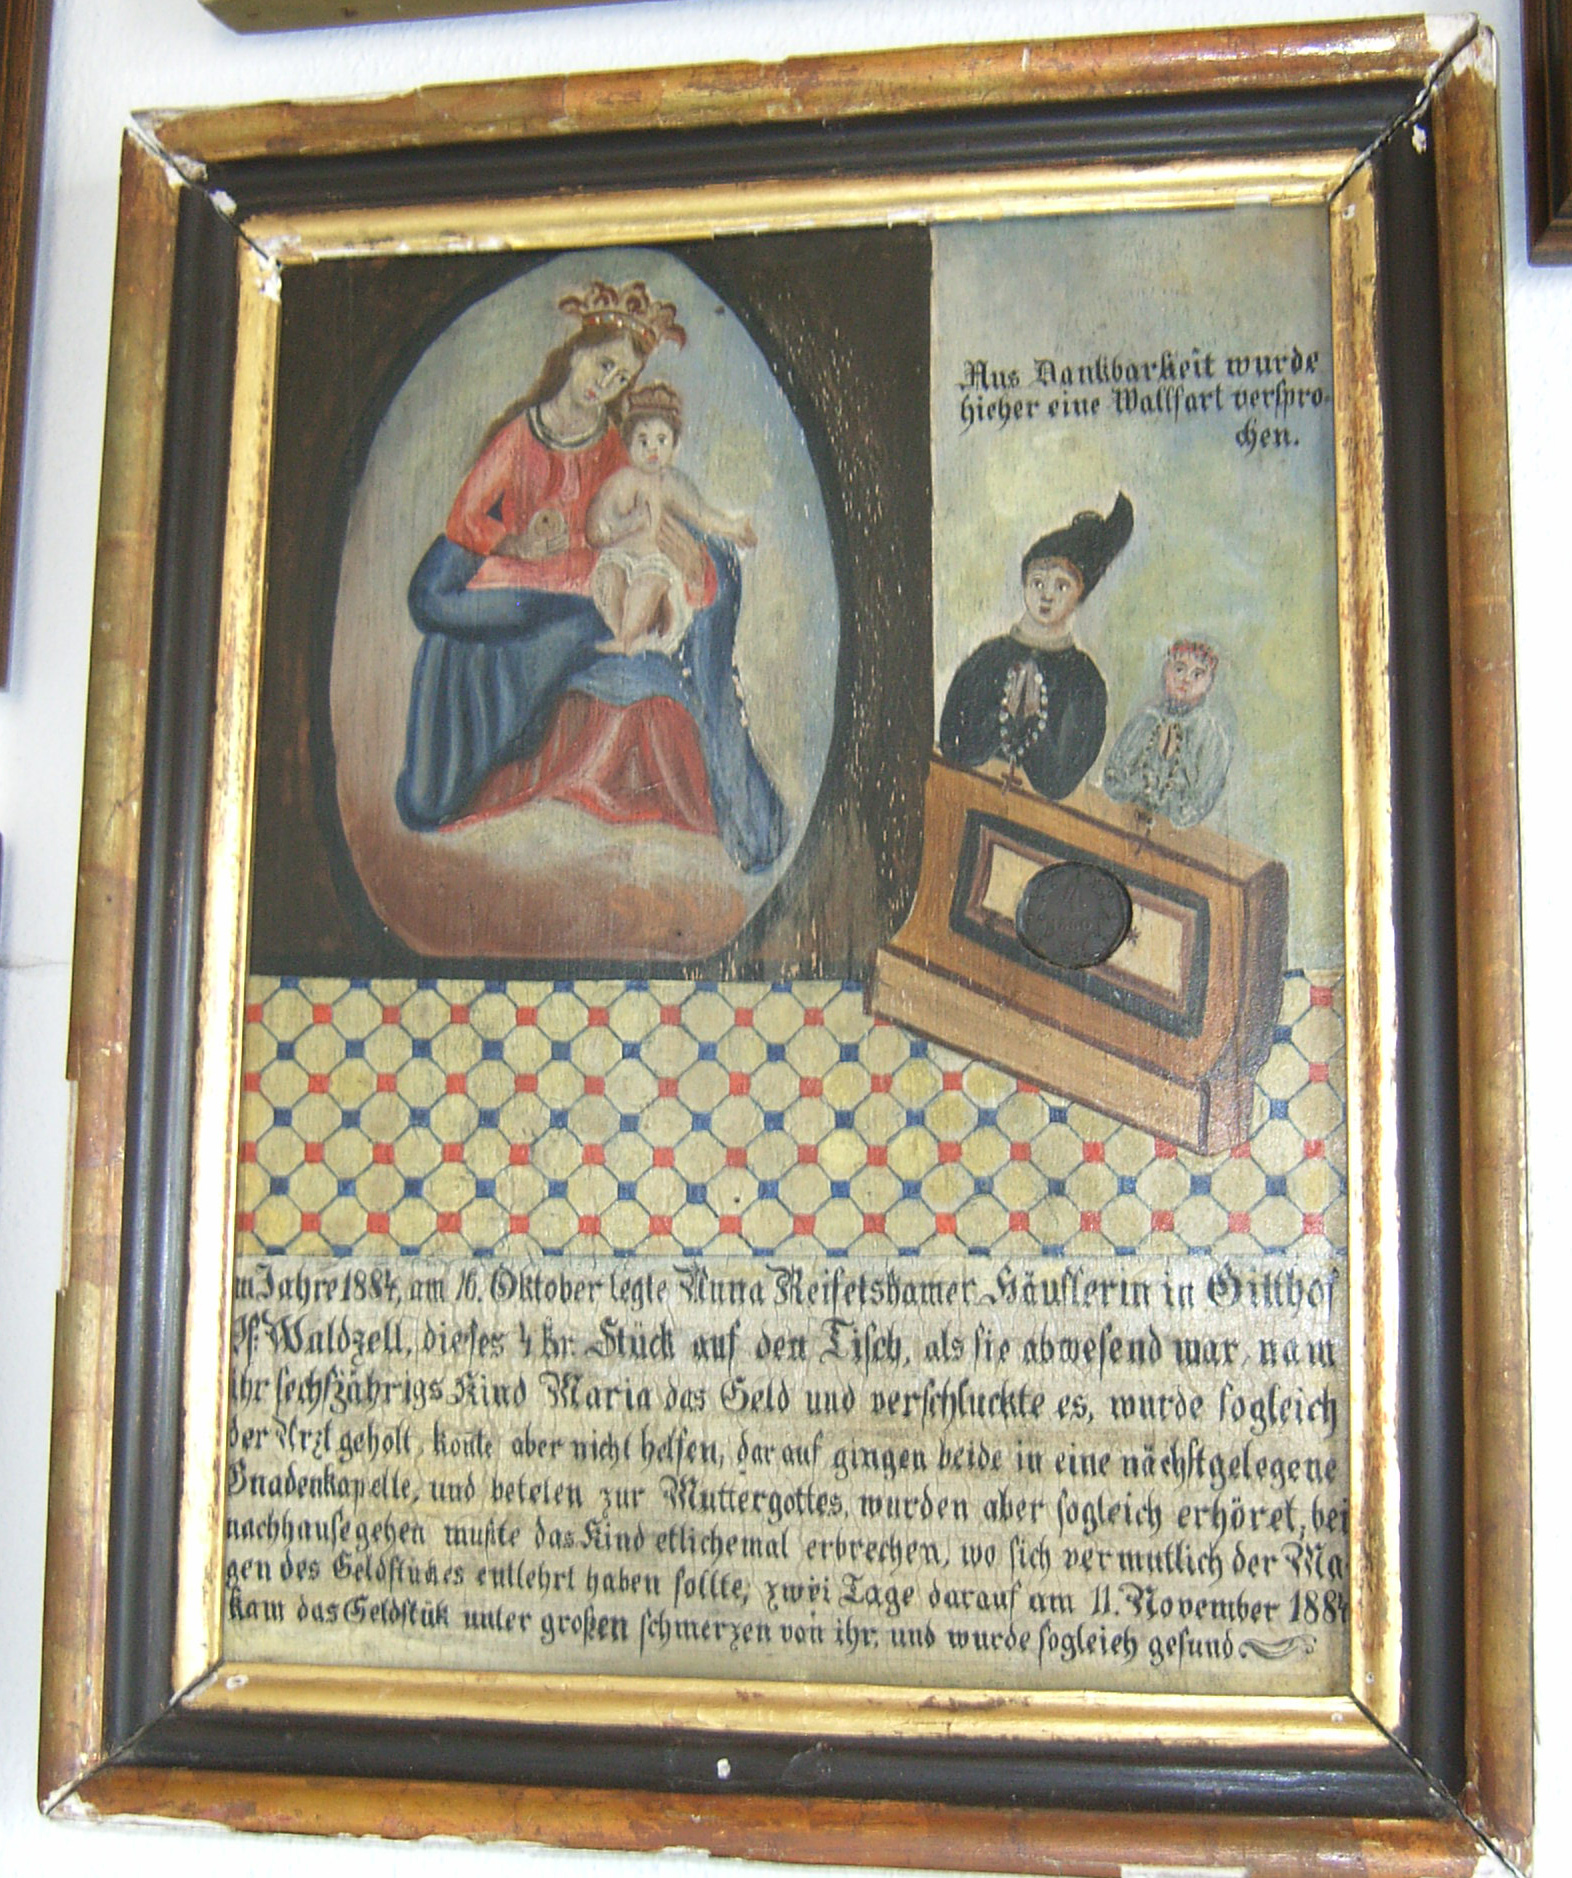 Aus Dankbarkeit wurde
hieher eine Wallfart verspro-
chen.
m Jahre 1884, am 16. Oktober legte Anna Reifetshamer Häuslerin in Gitthof
Pf. Waldzell, dieses 4 kr. Stück auf den Tisch, als sie abwesend war, nam
ihr sechsjährigs Kind Maria das Geld und verschluckte es, wurde sogleich
der Arzt geholt, konte aber nicht helfen, darauf gingen beide in eine nächstgelegene
Gnadenkapelle, und beteten zur Muttergottes, wurden aber sogleich erhöret, bei
nachhausegehen mußte das Kind etlichemal erbrechen, wo sich vermutlich der Ma-
gen des Geldstückes entlehrt haben sollte, zwei Tage darauf am 11. November 1884
kam das Geldstük unter großen schmerzen von ihr, und wurde sogleich gesund.